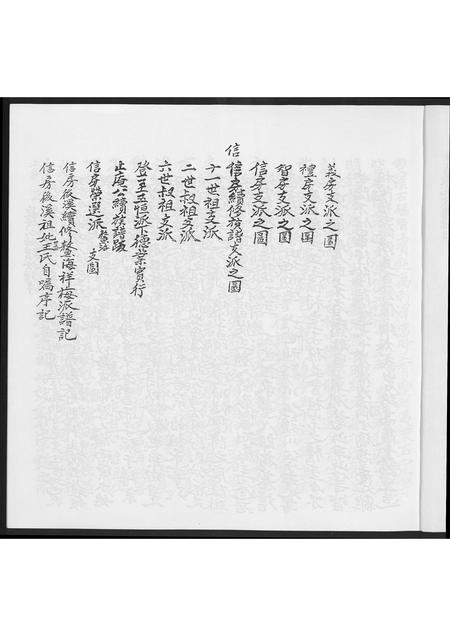 義房支派之圖
禮房支派之圖
智房支派之圖
信房支派之圖
信房續修族譜支派之圖
信
十一世祖支派
二世叔祖支派
六世叔祖支派
登至五恒派下德業實行
止庵公續族譜跋
信房榮選派 支圖
信房後溪續修鰲海祥梅派譜記
信房後溪祖妣王氏自囑序記